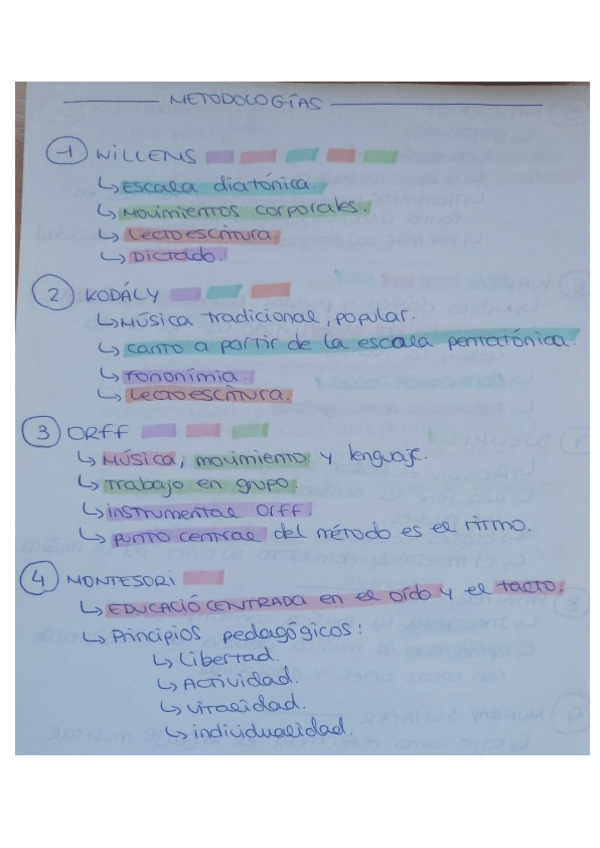 METODOLOGÍAS
1 WILLEMS
↳ Escala diatónica.
↳ Movimientos corporales.
↳ Lectoescritura.
↳ Dictado.
2 KODÁLY
↳ Música tradicional, popular.
↳ canto a partir de la escala pentatónica.
↳ Fononímia.
↳ Lectoescritura.
3 ORFF
↳ Música, movimiento y lenguaje.
↳ Trabajo en grupo.
↳ instrumental Orff.
↳ PUNTO CENTRAL del método es el ritmo.
4 MONTESORI
↳ EDUCACIÓ CENTRADA en el oído y el tacto.
↳ Principios pedagógicos:
↳ Libertad.
↳ Actividad.
↳ Vitalidad.
↳ individualidad.